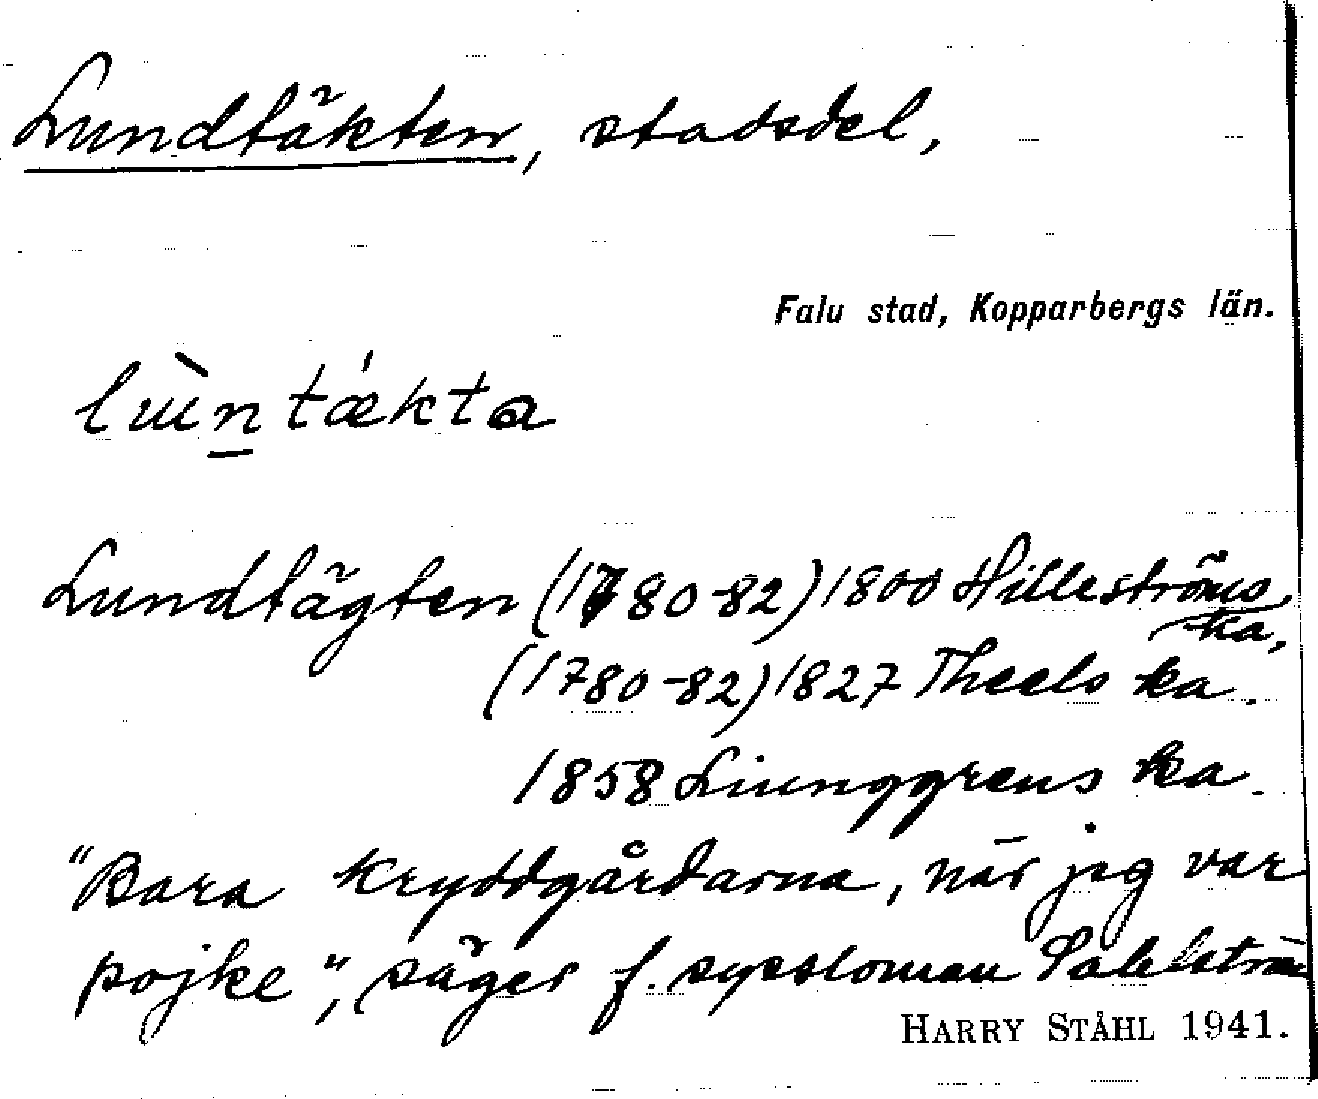 Lundtäkten, stadsdel,
Falu stad, Kopparbergs län.
Lundtägten (1780-82) 1800 Hilleströms
ka,
(1780-82) 1827 Theels ka.
1858 Liunggrens ka.
"Bara kryddgårdarna, när jag var
pojke", säger f. syssloman Sahlström
HARRY STÅHL 1941.